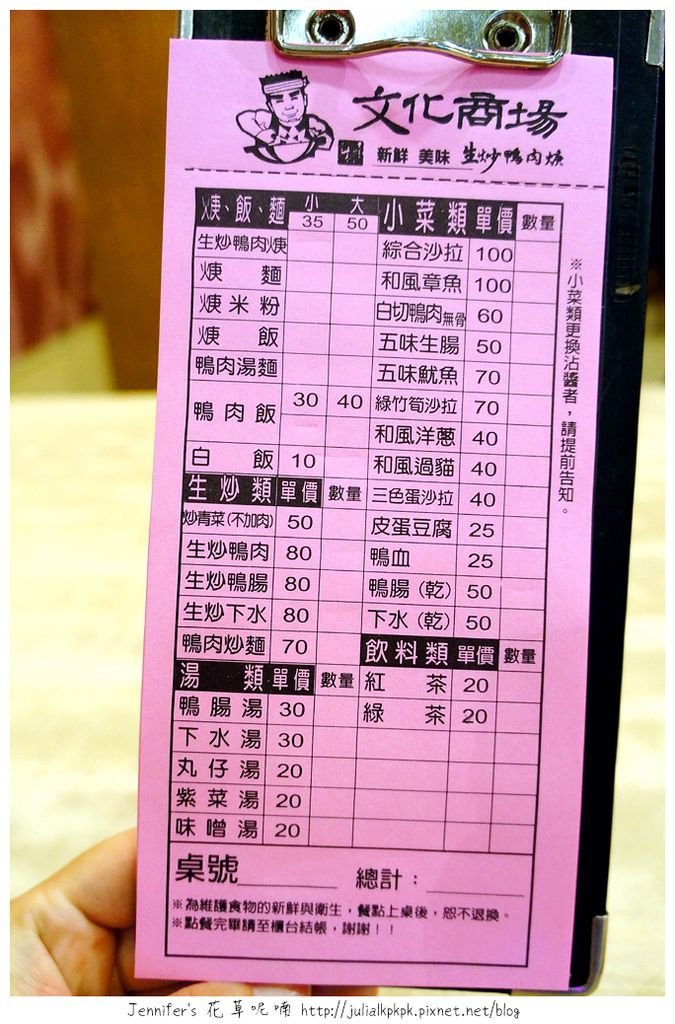 文化商場
新鮮 美味 生炒鴨肉焿
焿、飯、麵 小 大
35 50
生炒鴨肉焿
焿 麵
焿米粉
焿 飯
鴨肉湯麵
鴨肉飯 30 40
白 飯 10
生炒類 單價 數量
炒青菜(不加肉) 50
生炒鴨肉 80
生炒鴨腸 80
生炒下水 80
鴨肉炒麵 70
湯 類 單價 數量
鴨腸湯 30
下水湯 30
丸仔湯 20
紫菜湯 20
味噌湯 20
小菜類 單價 數量
綜合沙拉 100
和風章魚 100
白切鴨肉無骨 60
五味生腸 50
五味魷魚 70
綠竹筍沙拉 70
和風洋蔥 40
和風過貓 40
三色蛋沙拉 40
皮蛋豆腐 25
鴨血 25
鴨腸(乾) 50
下水(乾) 50
飲料類 單價 數量
紅 茶 20
綠 茶 20
※小菜類更換沾醬者，請提前告知。
桌號 總計：
※為維護食物的新鮮與衛生，餐點上桌後，恕不退換。
※點餐完畢請至櫃台結帳，謝謝！！
Jennifer's 花草呢喃 http://julialkpkpk.pixnet.net/blog